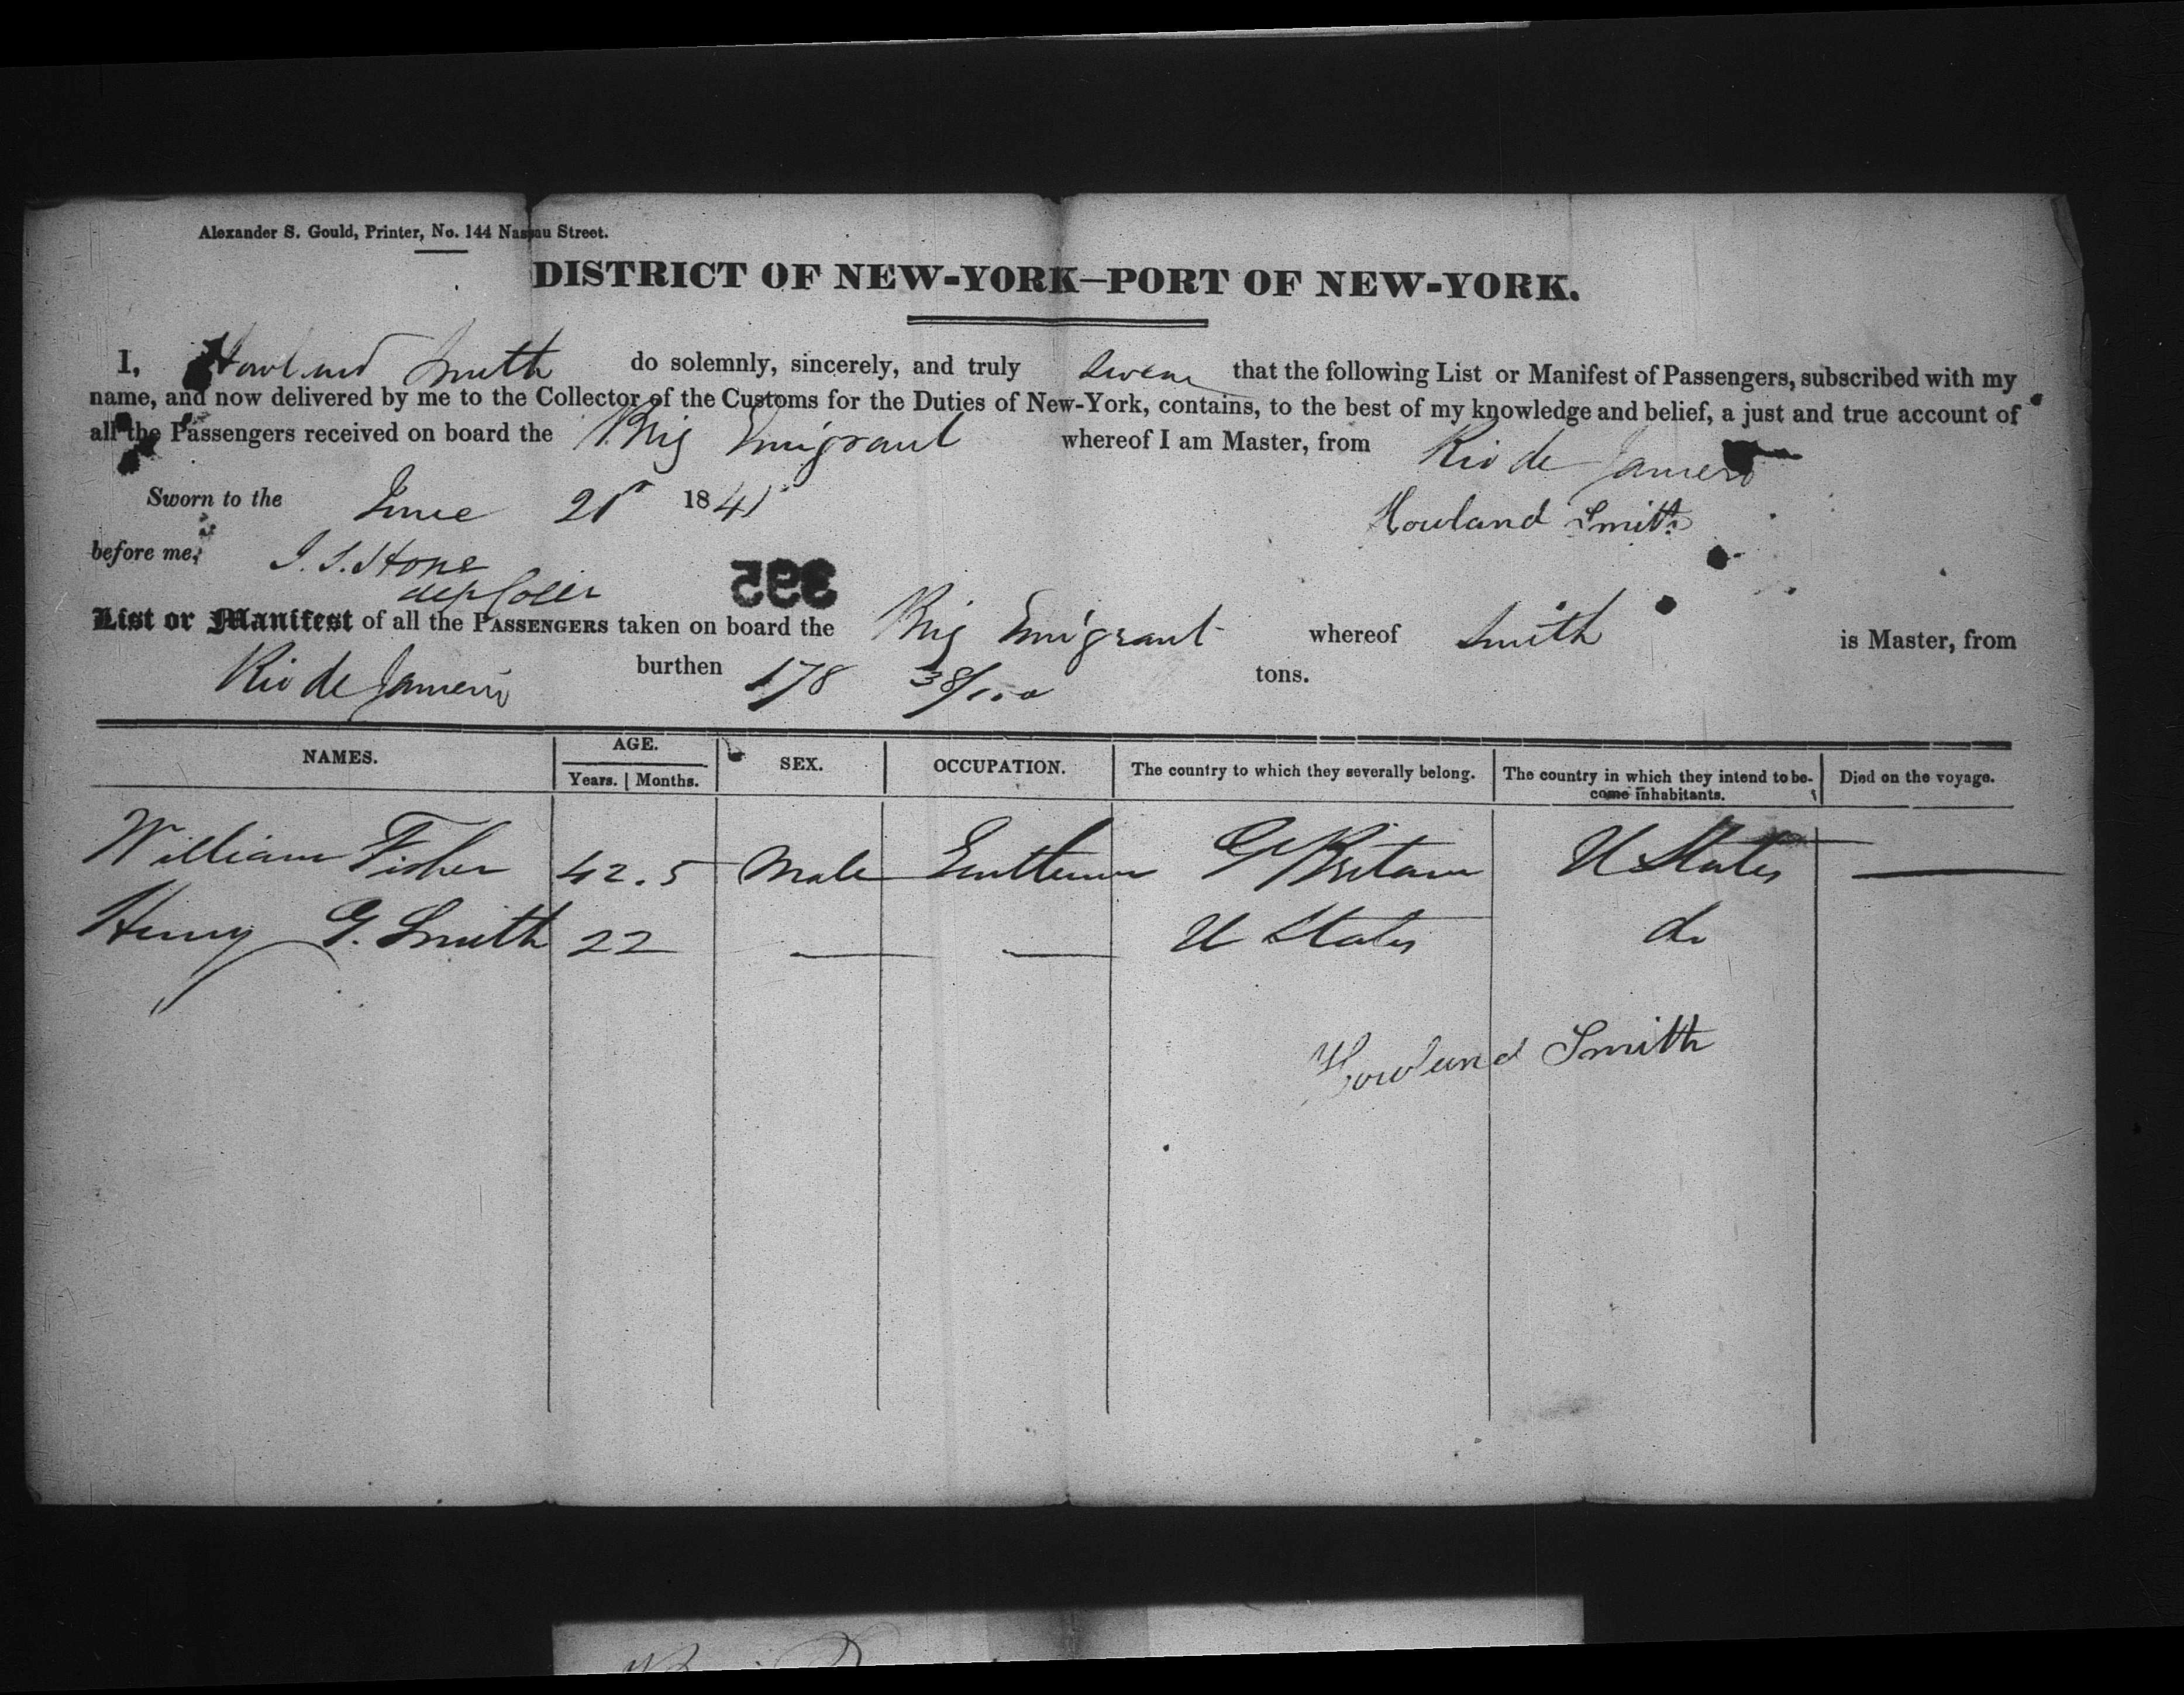 Alexander S. Gould, Printer, No. 144 Nassau Street.
DISTRICT OF NEW-YORK—PORT OF NEW-YORK.
I, Howland Smith do solemnly, sincerely, and truly swear that the following List or Manifest of Passengers, subscribed with my
name, and now delivered by me to the Collector of the Customs for the Duties of New-York, contains, to the best of my knowledge and belief, a just and true account of
all the Passengers received on board the Brig Emigrant whereof I am Master, from Rio de Janeiro
Sworn to the June 21st 1841
Howland Smith
before me, J. S. Stone
dep Coller
395
List or Manifest of all the PASSENGERS taken on board the Brig Emigrant whereof Smith is Master, from
Rio de Janeiro burthen 178 38/100 tons.
NAMES. AGE. SEX. OCCUPATION. The country to which they severally belong. The country in which they intend to be- Died on the voyage.
Years. Months. come inhabitants.
William Fisher 42.5 Male Gentleman G Britain U States —
Henry G. Smith 22 — — U States do
Howland Smith